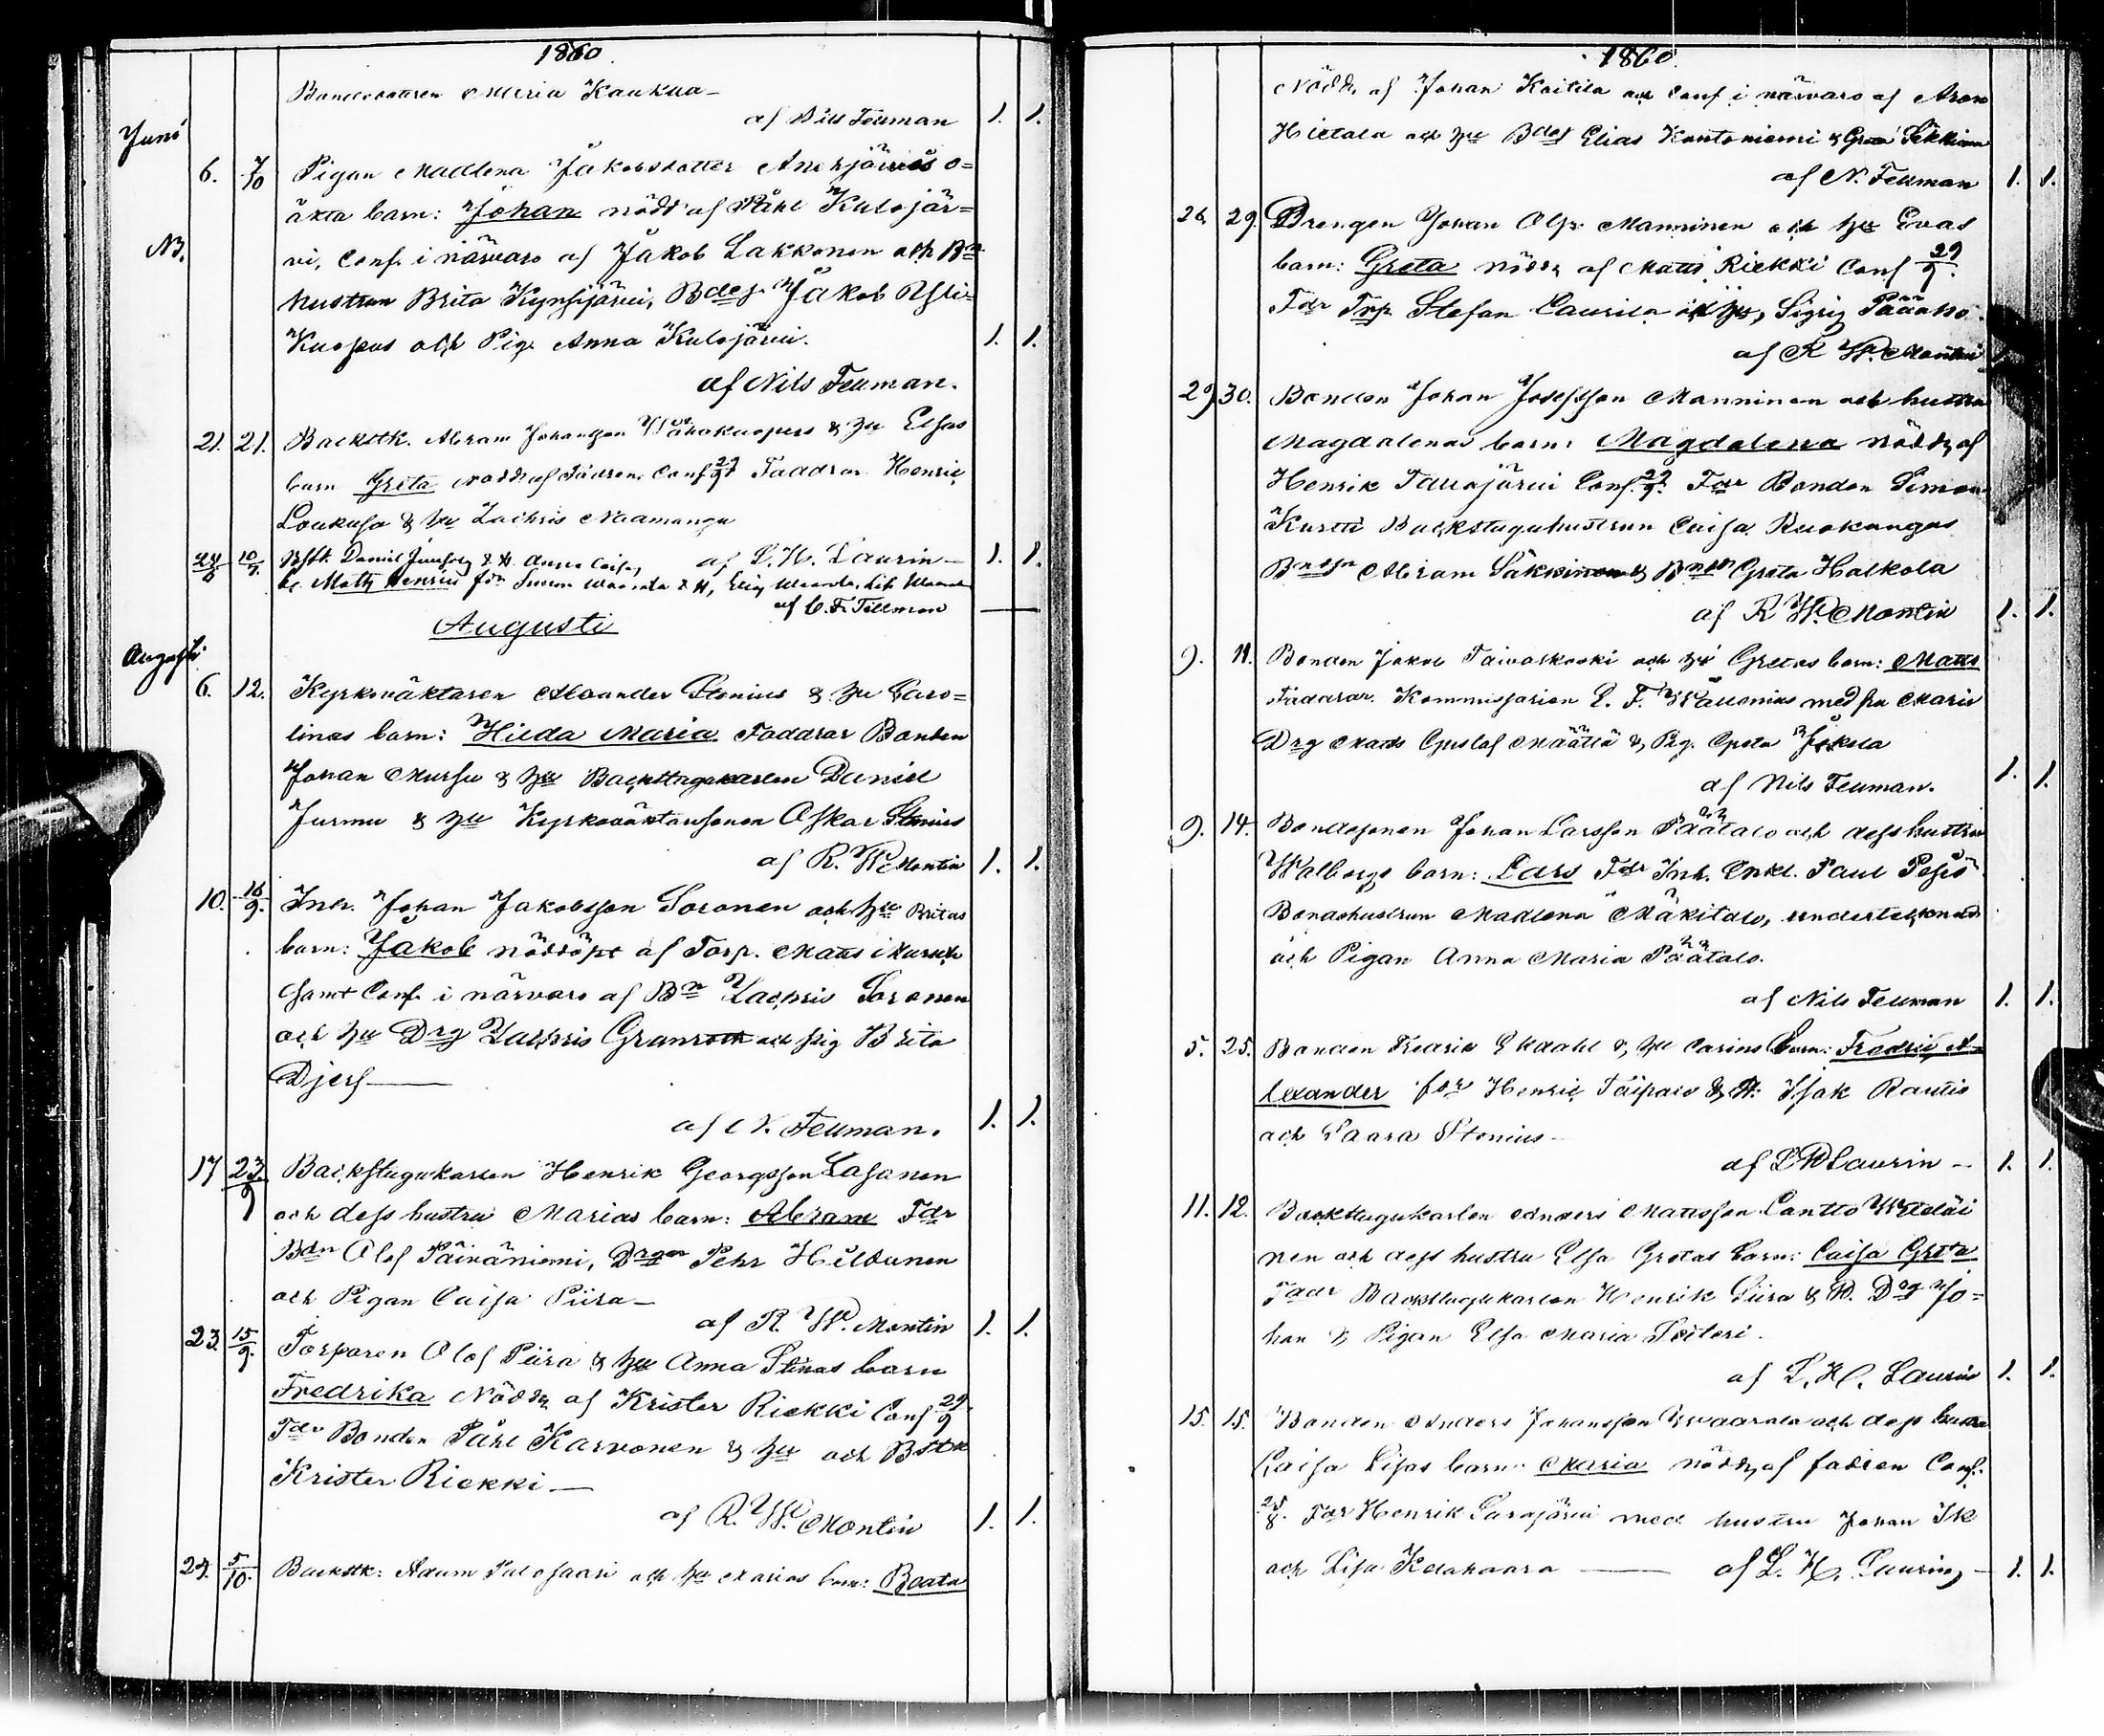 1860.
Bondedottren Maria Kaukua
af Nils Fellman 1. 1.
Juni
6. 7/10 Pigan Madlena Jakobsdotter Anehjärvis o=
äkta barn: Johan nödd. af Påhl Kulojär=
NB. vi, Conf. i närvaro af Jakob Lakkonen och Bn
hustrun Brita Kynsijärvi, Bdes. Jakob Yli=
Kuopus och Pig. Anna Kulojärvi. 1. 1.
af Nils Fellman.
21. 21. Backstk. Abram Johansson Wähäkuopus & hu Elsas
barn Greta nödd. af Fadren. Conf 29/9 Faddrar Henric
Loukusa & hu Zachris Naamanga
af L. H. Laurin 1. 1.
10/7. Daniel & H. Anna Caisas
b. Matts Henric fdr Simon
af C. F. Tillman
Augusti
Augusti
6. 12. Kyrkoväktaren Alexander Stenius & hu Caro=
linas barn: Hilda Maria Faddrar Bonden
Johan Mursu & hu Backstugukarlen Daniel
Jurmu & hu Kyrkoväktaresonen Oskar Stenius
af R. W. Montin 1. 1.
10. 16/9. Inh. Johan Jakobsson Soronen och hu Britas
barn: Jakob nöddöpt af Torp. Matts Mursch
samt Conf. i närvaro af Bn Zachris Soronen
och hu Drg Zachris Granroth och pig Brita
Djerf
af N. Fellman. 1. 1.
17 23/9 Backstugukarlen Henrik Georgsson Lasanen
och dess hustru Marias barn: Abram Fdr
Bdn Olof Päiväniemi, Drgn Pehr Hildunen
och Pigan Caisa Piira
af R. W. Montin 1. 1.
23. 15/9. Torparen Olof Piira & hu Anna Stinas barn
Fredrika Nödd. af Krister Riekki Conf 29/9
Fdr Bonden Påhl Karvonen & hu och Bstk
Krister Riekki
af R. W. Montin 1. 1.
5/10. Backstk: Adam Palosaari och hu Marias barn: Beata
1860.
Nödd. af Johan Kaitila och Conf i närvaro af Aron
Hietala och hu Bdes Elias Kantoniemi & Greta Säkkinen
af N. Fellman 1. 1.
26. 29. Drengen Johan Olss. Manninen och hu Evas
barn: Greta nödd. af Matts Riekki Conf 29/9.
Fdr Trp. Stefan Laurila och hu, Sigrig Pääkkö
af R W. Montin
29 30. Bonden Johan Josefsson Manninen och hustru
Magdalenas barn: Magdalena nödd. af
Henrik Tavajärvi Conf. 29/9. Fdr Bonden Simon
Kurtti Backstuguhustrun Caisa Ruokangas
Bnssn Abram Säkkinen & Bndtr Greta Halkola
af R. W. Montin 1. 1.
9. 11. Bonden Jakob Taivalkoski och hu Gretas barn: Matts
Faddrar. Kommissarien E. F. Wallenius med fru Maria
Drg Mats Gustaf Määttä & Pig. Greta Jokela
af Nils Fellman. 1. 1.
9. 14. Bondesonen Johan Larsson Päätalo och dess hustru
Walborgs barn: Lars Fdr Inh. Enkl. Paul Pesiö
Bondehustrun Madlena Mäkitalo, undertecknad
och Pigan Anna Maria Päätalo.
af Nils Fellman 1. 1.
5. 25. Bonden Fredric Ekdahl & hu Carins barn: Fredric A=
lexander fdr Henric Taipale & H: Isak Rautio
och Saara Stenius
af L H Laurin 1. 1.
11. 12. Backstugukarlen Anders Mattsson Lantto
nen och dess hustru Elsa Gretas barn: Caisa Greta
Fadr Backstugukarlen Henrik Piira & H. Drg Jo=
han & Pigan Elsa Maria
af L. H. Laurin 1. 1.
15. 15. Bonden Anders Johansson Ywaarala och dess hustru
Caisa Lisas barn: Maria nödd. af fadren Conf.
25/8. Fdr Henrik Sarajärvi med hustru Johan
och Lisa af L. H. Laurin 1. 1.